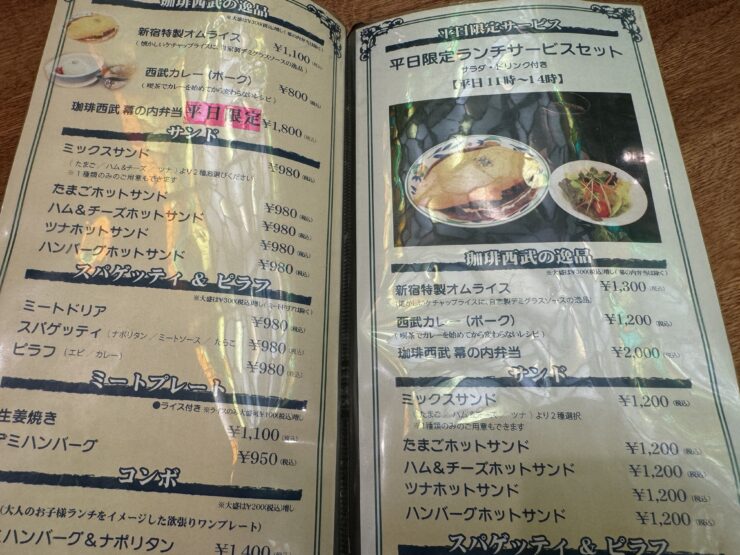 珈琲西武の逸品
新宿特製オムライス ¥1,100(税込)
西武カレー(ポーク) ¥800(税込)
(喫茶でカレーを始めてから変わらないレシピ)
珈琲西武 幕の内弁当 平日限定 ¥1,800(税込)
サンド
ミックスサンド ¥980(税込)
(たまご/ハム&チーズ/ツナ)より2種お選びください
※1種類のみのご用意もできます
たまごホットサンド ¥980(税込)
ハム&チーズホットサンド ¥980(税込)
ツナホットサンド ¥980(税込)
ハンバーグホットサンド ¥980(税込)
スパゲッティ & ピラフ
ミートドリア ¥980(税込)
スパゲッティ(ナポリタン/ミートソース/たらこ) ¥980(税込)
ピラフ(エビ/カレー) ¥980(税込)
ミートプレート
●ライス付き
生姜焼き ¥1,100(税込)
ミハンバーグ ¥950(税込)
コンボ
※大盛は¥200(税込)増し
(大人のお子様ランチをイメージした欲張りワンプレート)
ハンバーグ&ナポリタン ¥1,400(税込)
平日限定サービス
平日限定ランチサービスセット
サラダ・ドリンク付き
【平日11時~14時】
珈琲西武の逸品
新宿特製オムライス ¥1,300(税込)
西武カレー(ポーク) ¥1,200(税込)
(喫茶でカレーを始めてから変わらないレシピ)
珈琲西武 幕の内弁当 ¥2,000(税込)
サンド
ミックスサンド ¥1,200(税込)
より2種選択
※1種類のみのご用意もできます
たまごホットサンド ¥1,200(税込)
ハム&チーズホットサンド ¥1,200(税込)
ツナホットサンド ¥1,200(税込)
ハンバーグホットサンド ¥1,200(税込)
スパゲッティ & ピラフ